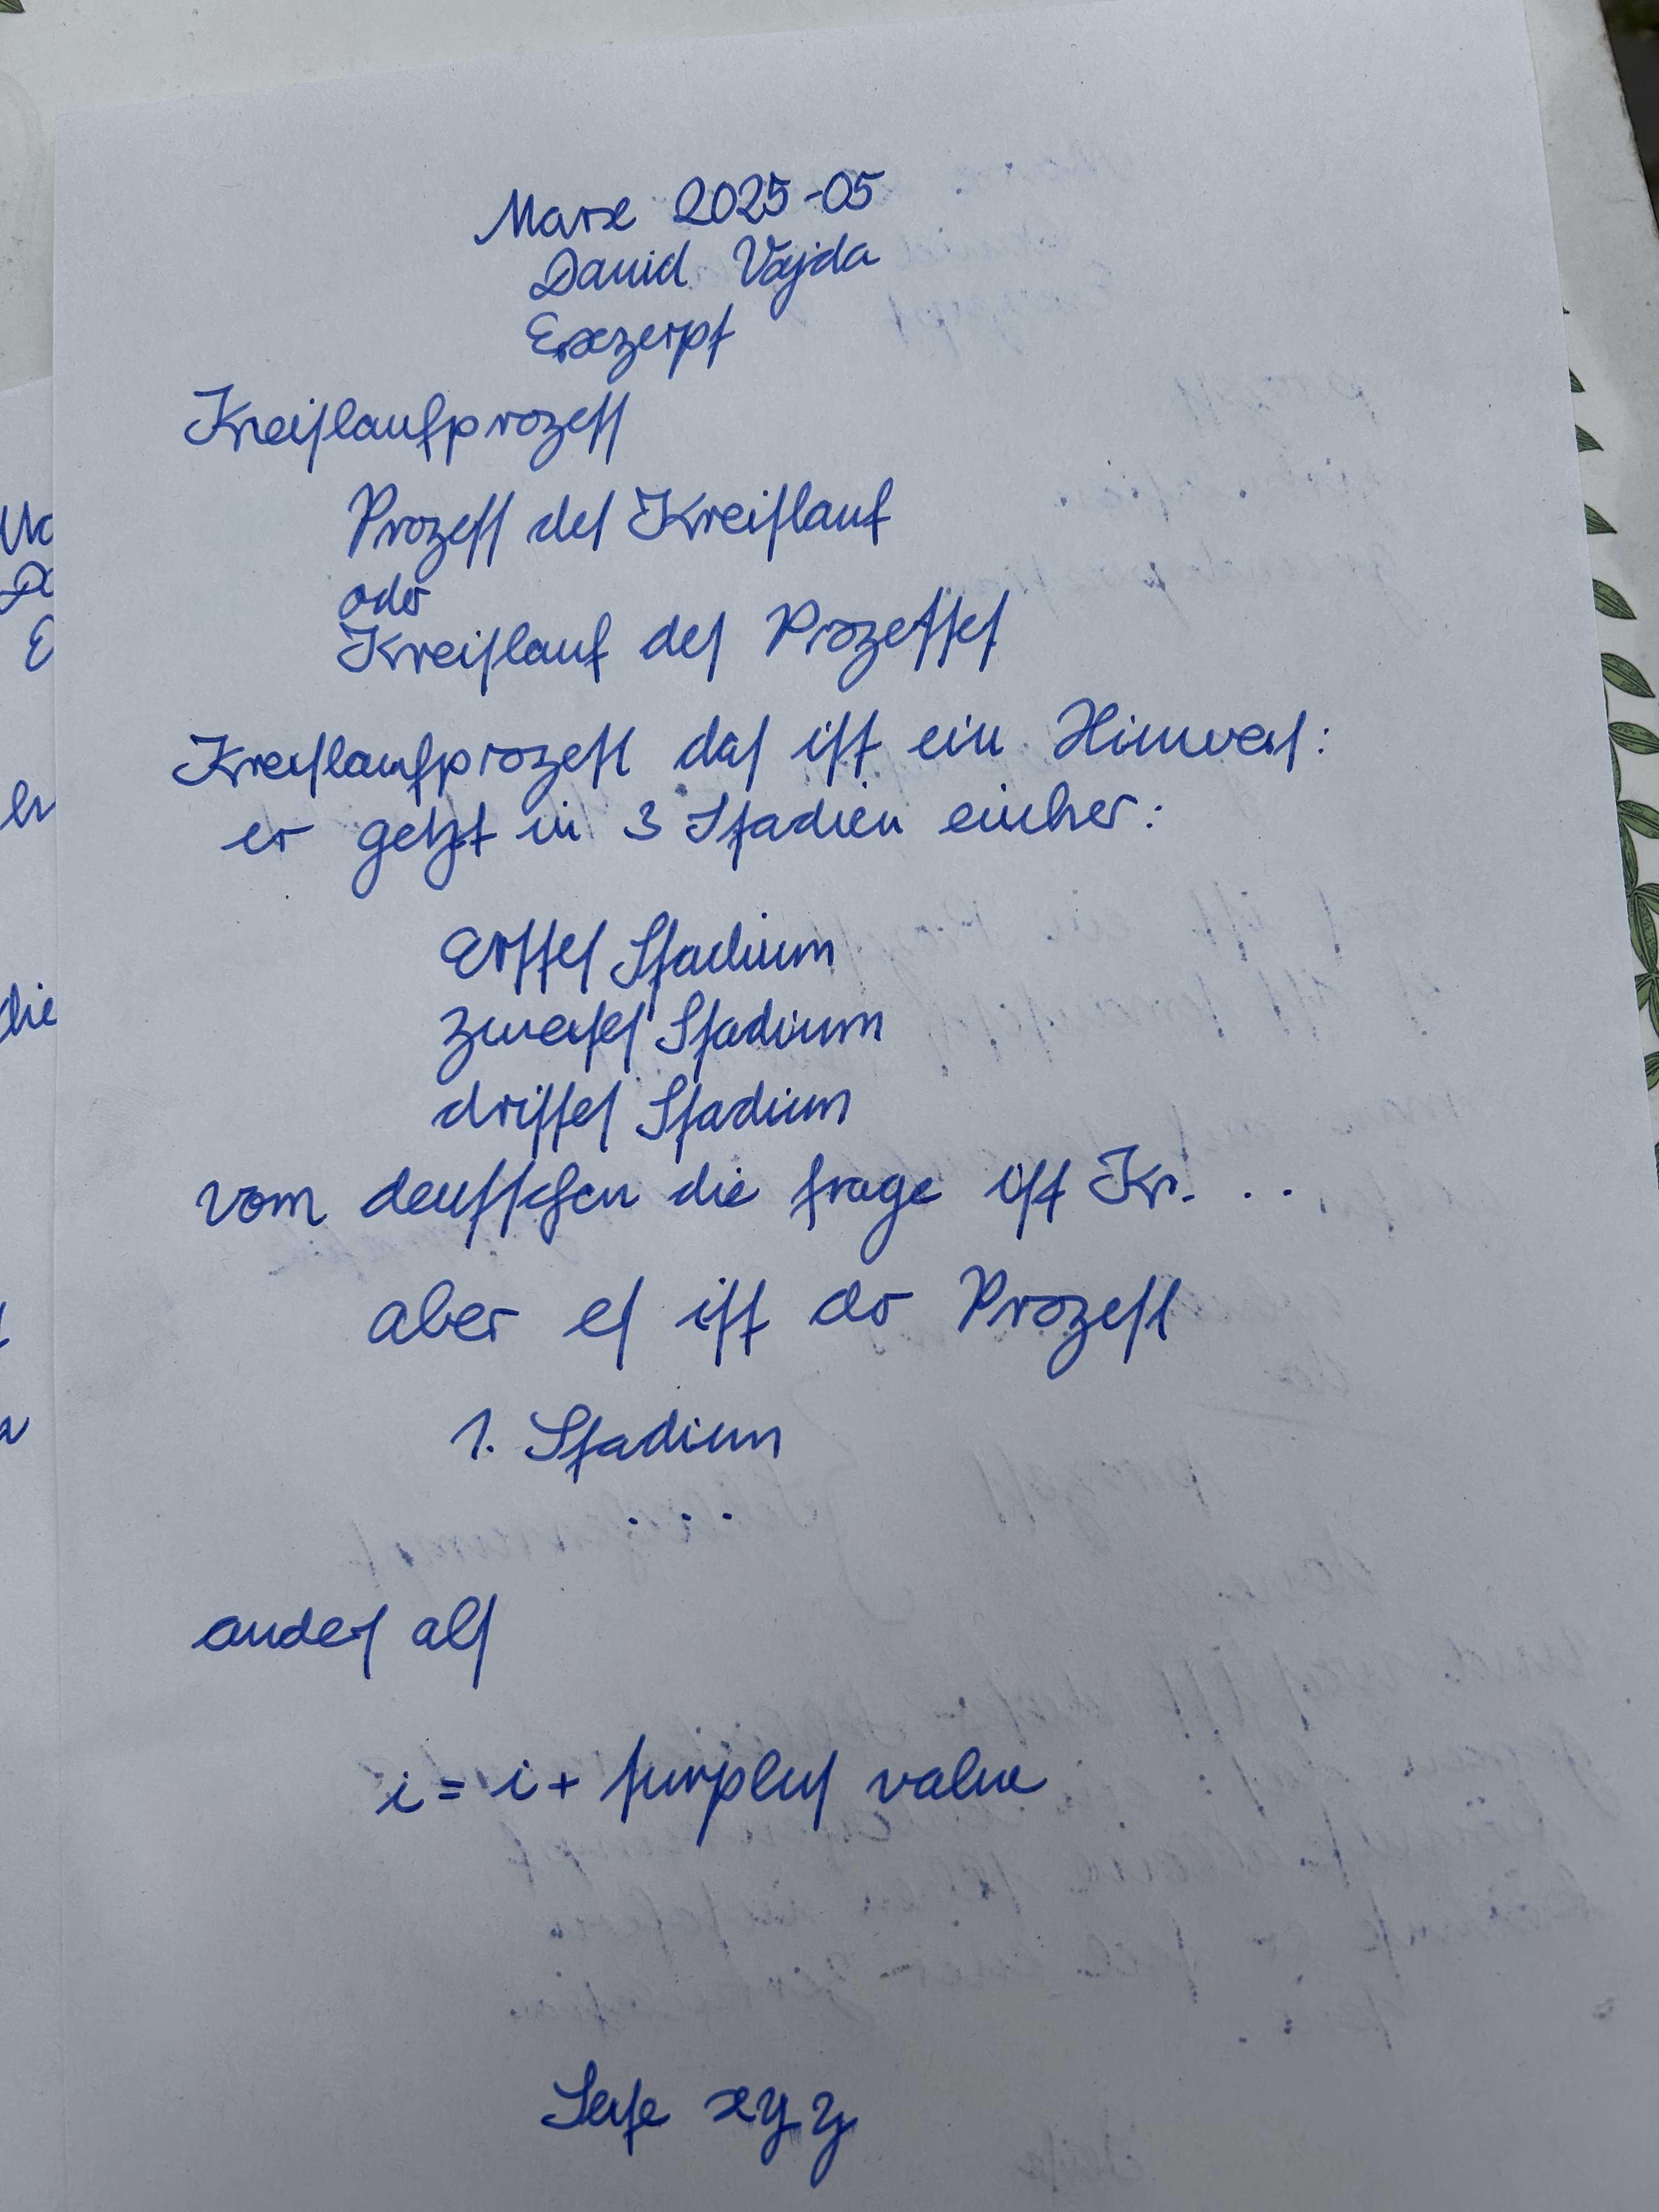 Marx 2025-05
David Vajda
Exzerpt
Kreislaufprozess
Prozess des Kreislauf
oder
Kreislauf des Prozesses
Kreislaufprozess das ist ein Hinweis:
er geht in 3 Stadien einher:
Erstes Stadium
Zweites Stadium
drittes Stadium
vom deutschen die frage ist Kr. ..
aber es ist der Prozess
1. Stadium
...
anders als
i = i + surplus value
Seite xyz